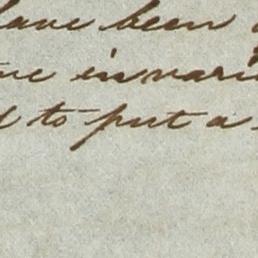 have been
invari
to put a